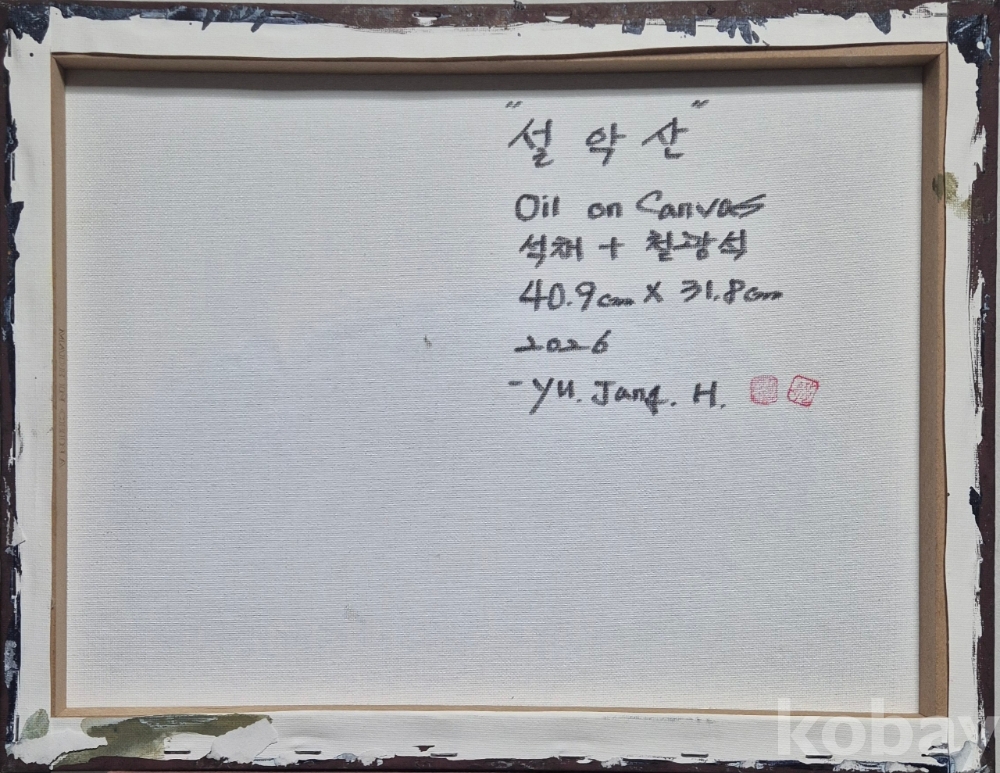 "설 악 산"
Oil on Canvas
석채 + 철광석
40.9cm X 31.8cm
2026
- Yu. Jang. H.
kobay